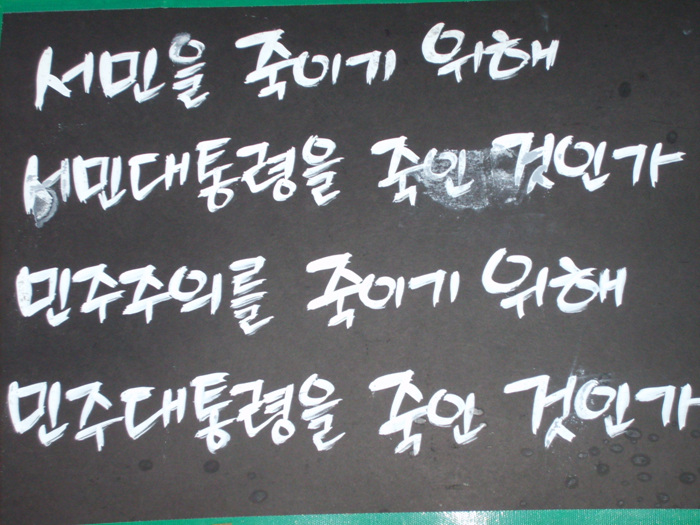 서민을 죽이기 위해
서민대통령을 죽인 것인가
민주주의를 죽이기 위해
민주대통령을 죽인 것인가